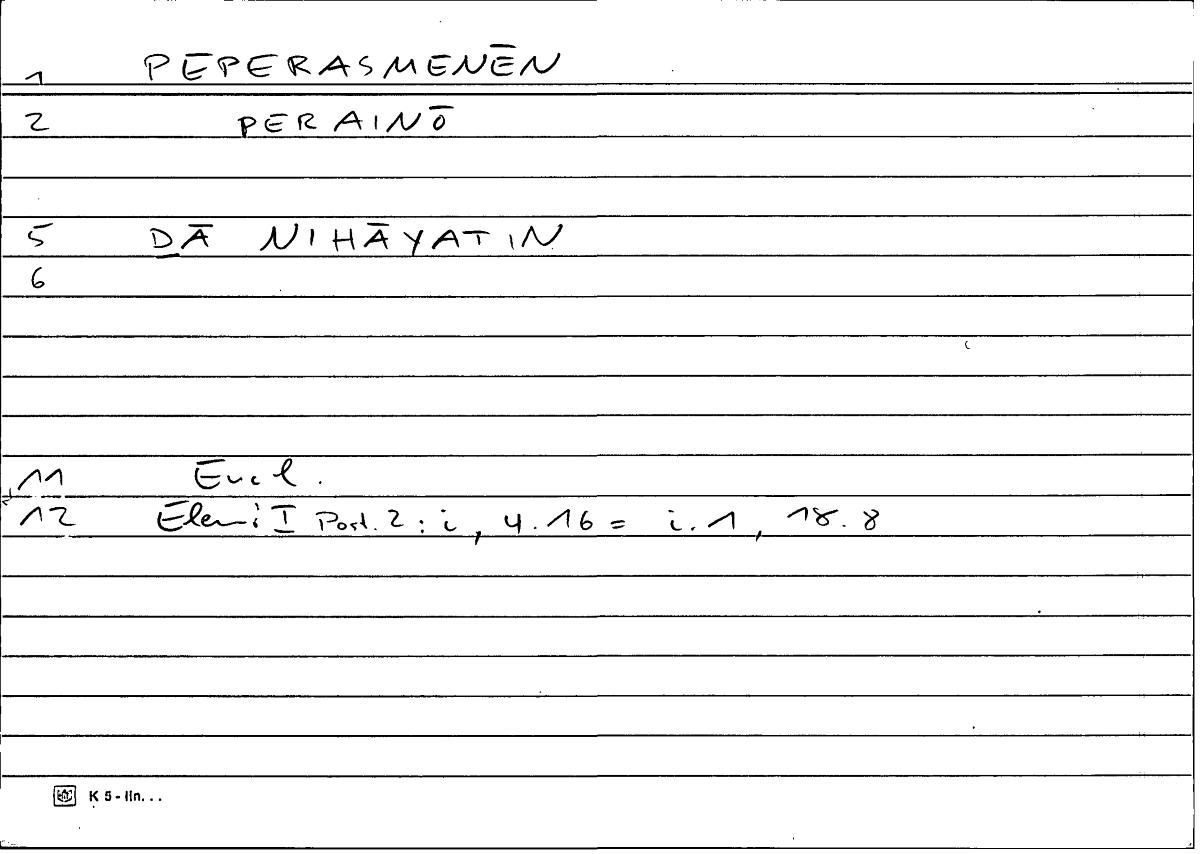 1 PEPERASMENĒN
2 PERAINŌ
5 ḎĀ NIHĀYATIN
6
11 Eucl.
12 Elem: I Post. 2 : i, 4.16 = i.1, 18.8
K 5 - lin...